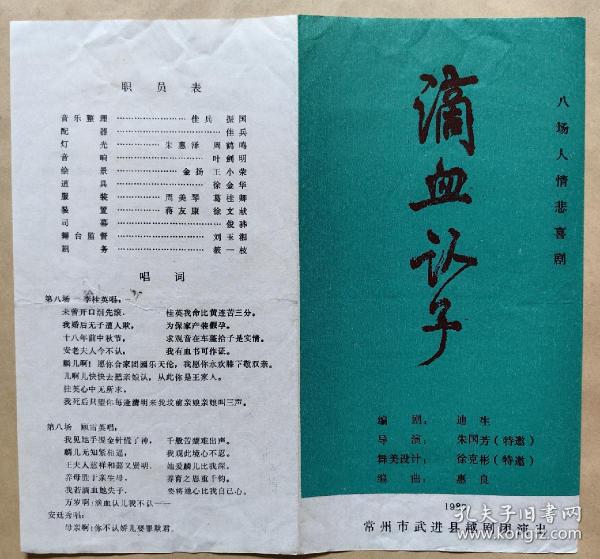 职员表
音乐整理……………佳兵 振国
配器……………佳兵
灯光……………朱惠泽 周鹤鸣
音响……………叶剑明
绘景……………金扬 王小荣
道具……………徐金华
服装……………周美琴 葛桂卿
装置……………蒋友康 徐文献
司幕……………俊
舞台监督……………刘玉湘
剧务……………筱一枝
唱词
第八场 李桂英唱:
未曾开口泪先滚, 桂英我命比黄连苦三分。
我婚后无子遭人欺, 为保家产装假孕。
十八年前中秋节, 求观音在车蓬拾子是实情。
安老夫人今不认, 我有血书可作证。
麟儿啊!愿你合家团圆乐天伦,我愿你永欢膝下敬双亲。
儿啊儿快快去把亲娘认,从此你是王家人。
桂英心中无所求,
我死后只望你每逢清明来我坟前亲娘亲娘叫三声。
第八场 顾雪英唱:
我见她手握金针慌了神, 千般苦楚难出声。
麟儿无知紧相逼, 我观此境心不忍。
王夫人慈祥和蔼又贤明, 她爱麟儿比我深。
养母胜于亲生母, 养育之恩重千钧。
我若滴血她失子, 要将她心比我自己心。
万岁啊!滴血认儿我不认——
安廷秀唱:
母亲啊!你不认娇儿要罪欺君。
滴血认子
八场人情悲喜剧
编剧:迪生
导演:朱国芳(特邀)
舞美设计:徐克彬(特邀)
编曲:惠良
198
常州市武进县越剧团演出
孔夫子旧书网